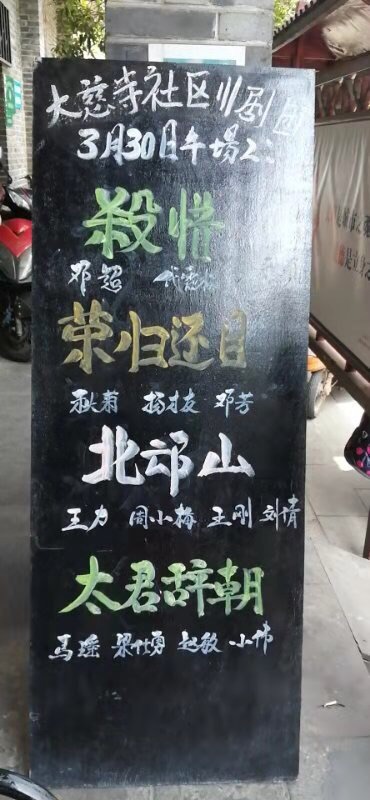 大慈寺社区川剧团
3月30日午場2:
殺惜
邓超
荣归还目
秋菊 杨才友 邓芳
北邙山
王力 周小梅 王刚 刘倩
太君辞朝
馬瑶 梁仕勇 赵敏 小伟